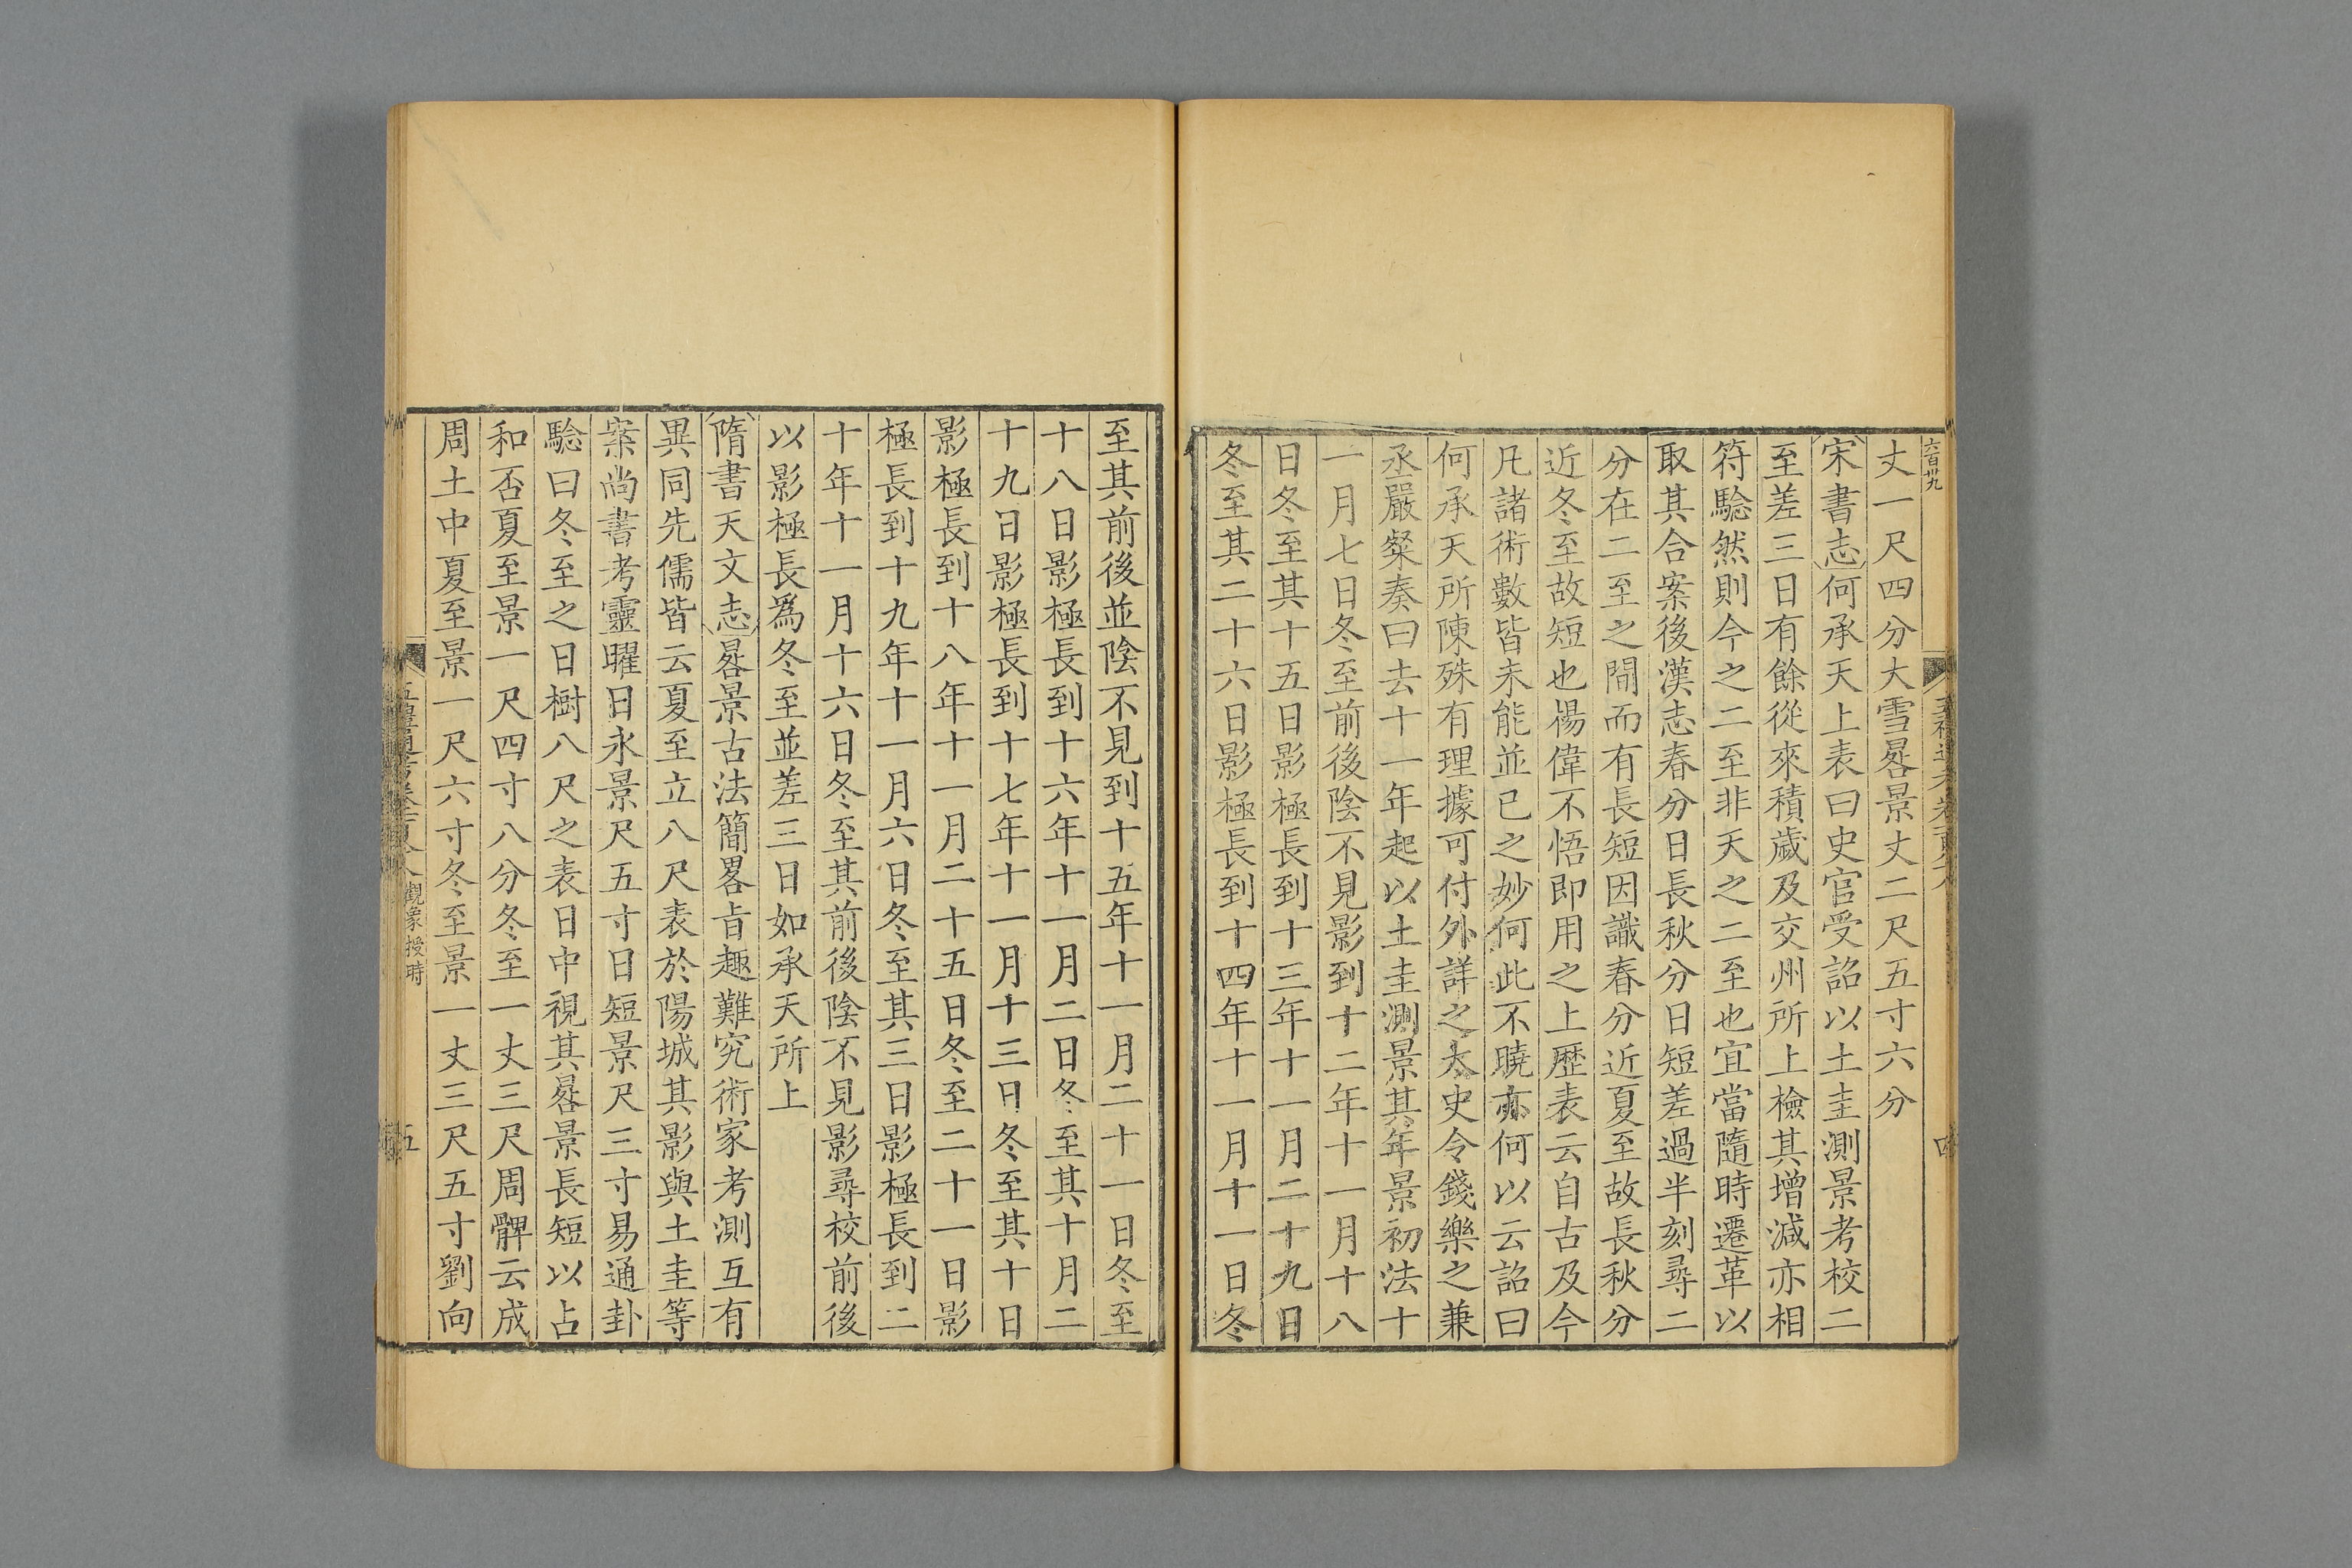 六百卅九
丈一尺四分大雪晷景丈二尺五寸六分
宋書志何承天上表曰史官受詔以土圭測景考校二
至差三日有餘從來積歲及交州所上檢其增減亦相
符驗然則今之二至非天之二至也宜當隨時遷革以
取其合案後漢志春分日長秋分日短差過半刻尋二
分在二至之間而有長短因識春分近夏至故長秋分
近冬至故短也楊偉不悟即用之上歷表云自古及今
凡諸術數皆未能並已之妙何此不曉亦何以云詔曰
何承天所陳殊有理據可付外詳之太史令錢樂之兼
丞嚴粲奏曰去十一年起以土圭測景其年景初法十
一月七日冬至前後陰不見影到十二年十一月十八
日冬至其十五日影極長到十三年十一月二十九日
冬至其二十六日影極長到十四年十一月十一日冬
至其前後並陰不見到十五年十一月二十一日冬至
十八日影極長到十六年十一月二日冬至其十月二
十九日影極長到十七年十一月十三日冬至其十日
影極長到十八年十一月二十五日冬至二十一日影
極長到十九年十一月六日冬至其三日影極長到二
十年十一月十六日冬至其前後陰不見影尋校前後
以影極長爲冬至並差三日如承天所上
隋書天文志晷景古法簡畧旨趣難究術家考測互有
異同先儒皆云夏至立八尺表於陽城其影與土圭等
案尚書考靈曜日永景尺五寸日短景尺三寸易通卦
驗曰冬至之日樹八尺之表日中視其晷景長短以占
和否夏至景一尺四寸八分冬至一丈三尺周髀云成
周土中夏至景一尺六寸冬至景一丈三尺五寸劉向
觀象授時
五